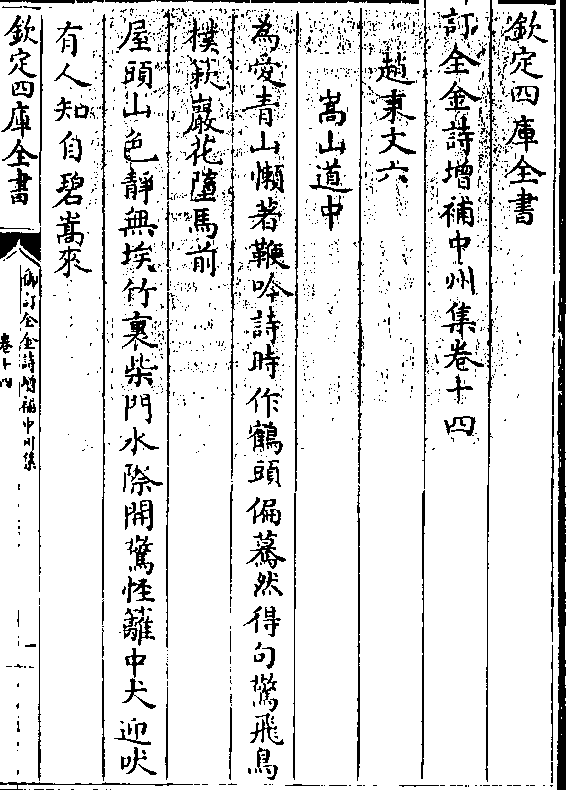 欽定四庫全書
訂全金詩增補中州集卷十四
趙秉文六
嵩山道中
為愛青山懶著鞭吟詩時作鶴頭偏驀然得句驚飛鳥
撲簌巖花墮馬前
屋頭山色靜無埃竹裏柴門水際開驚怪籬中犬迎吠
有人知自碧嵩來
欽定四庫全書
御訂全金詩增補中州集
卷十四
一